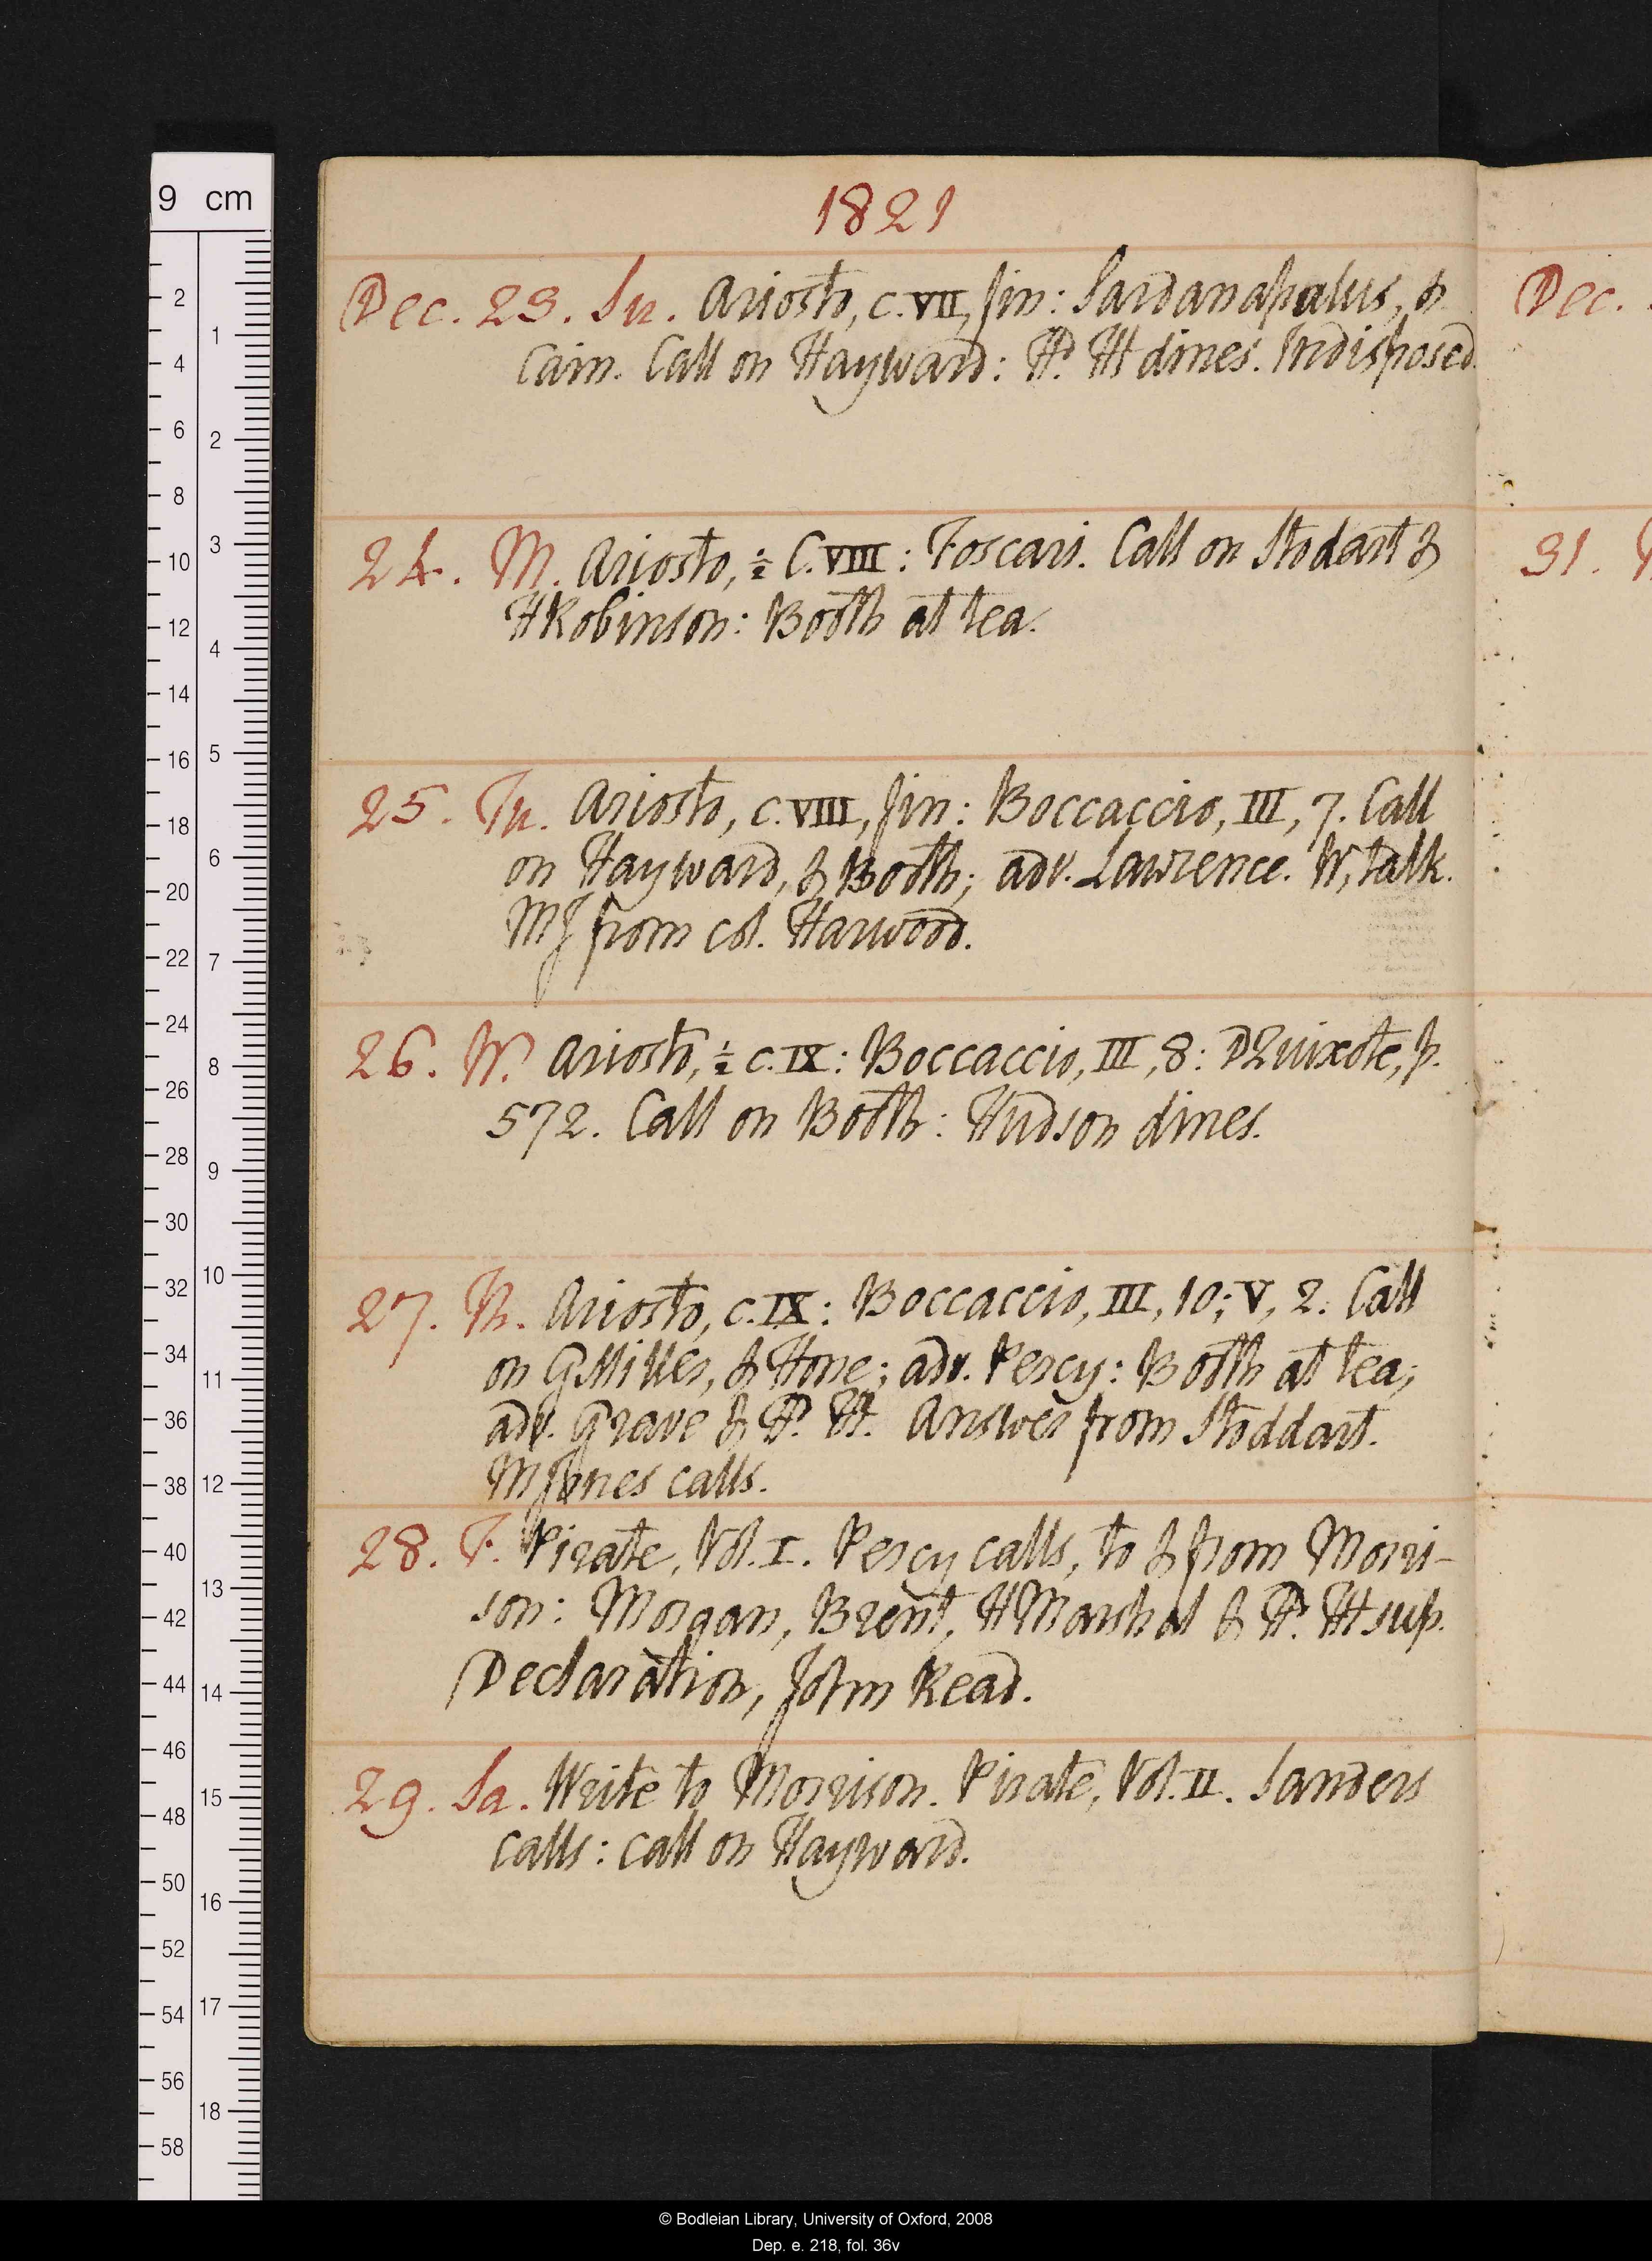 1821
Dec. 23. Su. Ariosto, c. VII, fin: Sardanapalus, &
Cain. Call on Hayward: H. H dines. Indisposed.
24. M. Ariosto, ½ C. VIII: Foscari. Call on Stodart &
HRobinson: Booth at tea.
25. Tu. Ariosto, c. VIII, fin: Boccaccio, III, 7. Call
on Hayward, & Booth; adv. Lawrence. W, talk.
MJ from col. Harwood.
26. W. Ariosto, ½ c. IX: Boccaccio, III, 8: DQuixote, p.
572. Call on Booth: Hudson dines.
27. Th. Ariosto, c. IX: Boccaccio, III, 10; V, 2. Call
on GMiller, & Hone; adv. Percy: Booth at tea;
adv. Grave & H. H. Answer from Stoddart.
MJones calls.
28. F. Pirate, Vol. I. Percy calls, to & from Morri-
son: Morgan, Brent, HMarshal & H. H sup.
Declaration, John Read.
29. Sa. Write to Morrison. Pirate, Vol. II. Sanders
calls: call on Hayward.
Dec.
31.
9 cm
2
4
6
8
10
12
14
16
18
20
22
24
26
28
30
32
34
36
38
40
42
44
46
48
50
52
54
56
58
1
2
3
4
5
6
7
8
9
10
11
12
13
14
15
16
17
18
© Bodleian Library, University of Oxford, 2008
Dep. e. 218, fol. 36v